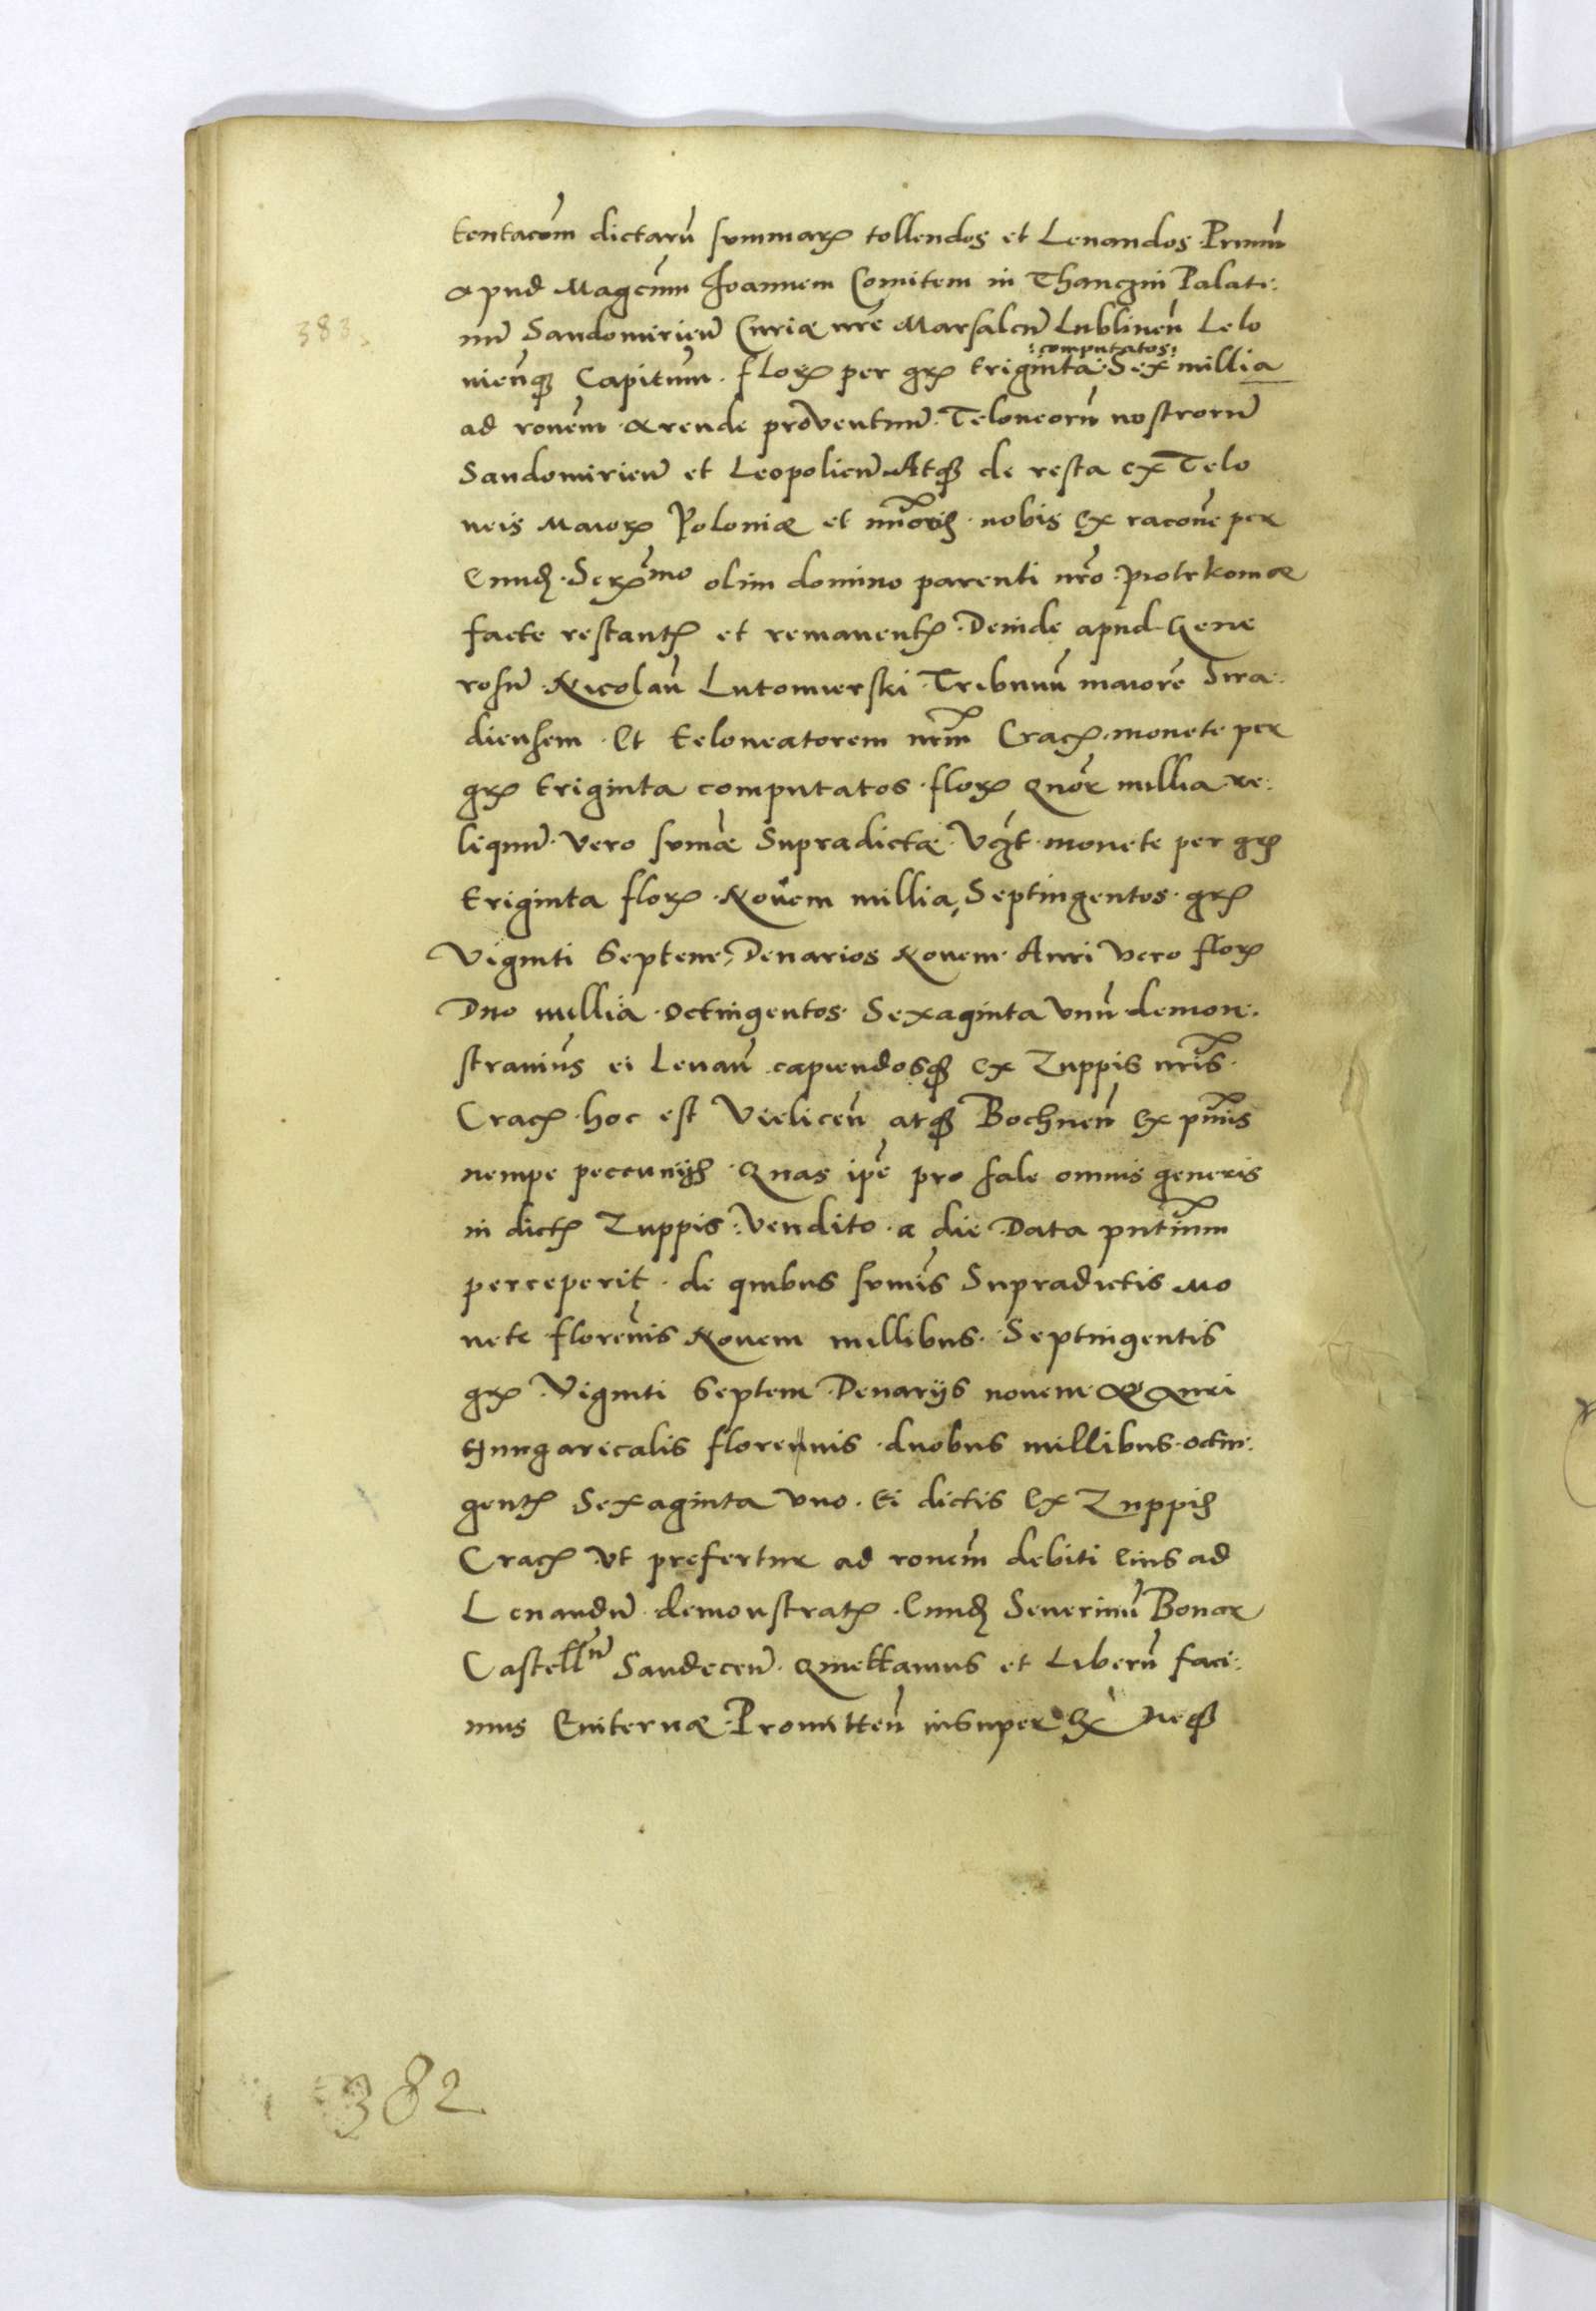 tentacōm dictarū summarꝝ tollendos et Leuandos Primū
apud Magcūm Joannem Comitem in Thanczin Palati:
nū Sandomirieñ Curiæ nrē Marsalcū Lublineñ Lelo
383
:computatos:
nieñqꝫ Capitum. florꝝ per grꝫ triginta Sex millia
ad ronēm Arende proventuū Teloneorū nostrorū
Sandomirieñ et Leopolieñ Atqꝫ de resta ex Telo
neis Maiorꝫ Poloniæ et miōris nobis Ex racone per
Eund. Serꝫmo olim domino parenti nrō Piotrkoviæ
facte restantꝫ et remanentꝫ Deinde apud Gene
rosū Nicolaū Lutomierski Tribunū maiorē Sira:
diensem Et teloneatorem nrm̄ Cracꝫ monete per
grꝫ triginta computatos florꝫ Quor millia re:
liquū vero sumæ Supradictæ Vczt monete per grꝫ
triginta florꝫ Novem millia Septingentos grꝫ
Viginti Septem, Denarios Nouem Auri vero florꝫ
Duo millia Octingentos Sexaginta vnū demon:
straviūs ei Leuañ capiendosqꝫ ex Zuppis nrīs
Cracꝫ hoc est Vieliceñ atqꝫ Bochneñ Ex primis
nempe peccunijs Quas ipē pro sale omnis generis
in dictꝫ Zuppis Vendito a die Data pntium
perceperit de quibus sumīs Supradictis Mo
nete florenis Nouem millibus Septingentis
grꝫ Viginti Septem Denarijs nouem & Auri
Hungaricalis florennis duobus millibus octin:
gentꝫ Sexaginta vno Ei dictis Ex Zuppis
Cracꝫ vt prefertur ad ronēm debiti Eius ad
Leuandū demonstratꝫ Eund Seuerinū Bonar
Castellnū Sandeceñ Quittamus et Liberū faci:
mus Euiternæ Promitteñ insuper Ex Neqꝫ
382